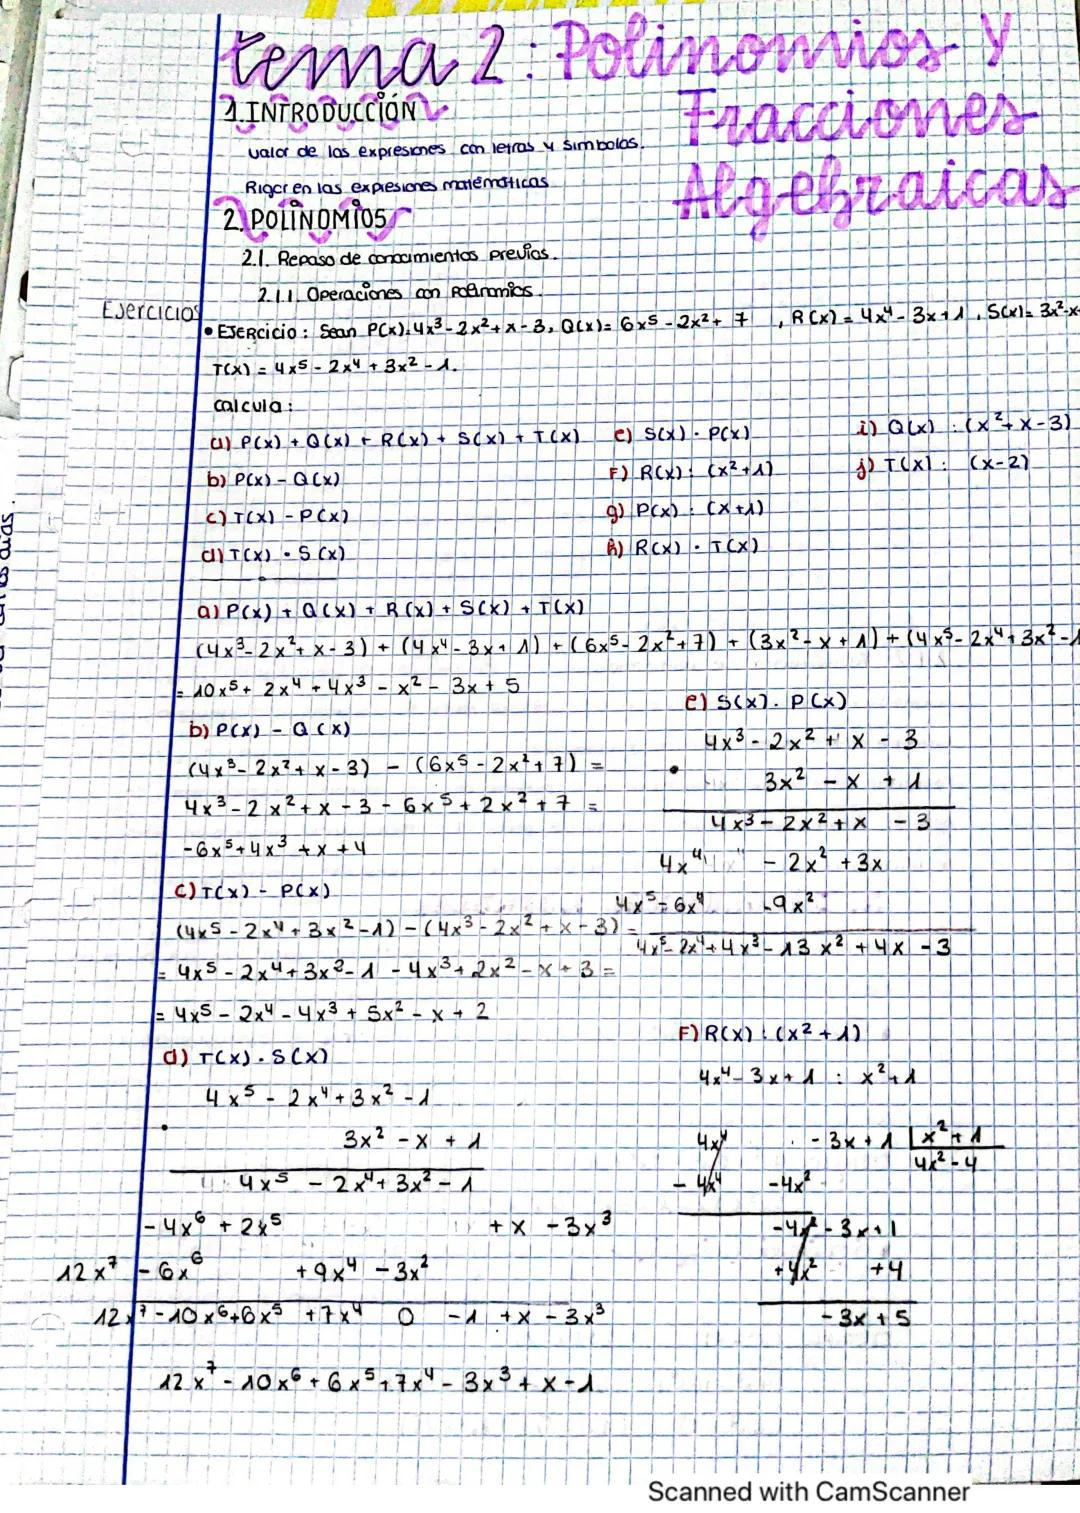 tema 2: Polinomios y
Fracciones
Algebraicas
1. INTRODUCCIÓN
valor de las expresiones con letras y simbolos.
Rigor en las expresiones matemáticas
2. POLINOMIOS
2.1. Repaso de conocimientos previos.
2.1.1. Operaciones con polinomios.
Ejercicios
• EJERCICIO: Sean P(x)=4x³-2x²+x-3, Q(x)=6x⁵-2x²+7, R(x)=4x⁴-3x+1, S(x)=3x²-x+
T(x)=4x⁵-2x⁴+3x²-1.
calcula:
a) P(x)+Q(x)+R(x)+S(x)+T(x)
b) P(x)-Q(x)
c) T(x)-P(x)
d) T(x)·S(x)
e) S(x)·P(x)
F) R(x):(x²+1)
g) P(x):(x+1)
h) R(x)·T(x)
i) Q(x):(x²+x-3)
j) T(x): (x-2)
a) P(x)+Q(x)+R(x)+S(x)+T(x)
(4x³-2x²+x-3)+(4x⁴-3x+1)+(6x⁵-2x²+7)+(3x²-x+1)+(4x⁵-2x⁴+3x²-1
= 10x⁵+2x⁴+4x³-x²-3x+5
b) P(x)-Q(x)
(4x³-2x²+x-3)-(6x⁵-2x²+7)=
4x³-2x²+x-3-6x⁵+2x²+7=
-6x⁵+4x³+x+4
c) T(x)-P(x)
(4x⁵-2x⁴+3x²-1)-(4x³-2x²+x-3)=
= 4x⁵-2x⁴+3x²-1-4x³+2x²-x+3=
= 4x⁵-2x⁴-4x³+5x²-x+2
d) T(x)·S(x)
4x⁵-2x⁴+3x²-1
· 3x²-x+1
4x⁵-2x⁴+3x²-1
-4x⁶+2x⁵ +x -3x³
12x⁷ -6x⁶ +9x⁴ -3x²
12x⁷-10x⁶+6x⁵ +7x⁴ 0 -1 +x -3x³
12x⁷-10x⁶+6x⁵+7x⁴-3x³+x-1
e) S(x)·P(x)
4x³-2x²+x-3
· 3x²-x+1
4x³-2x²+x -3
4x⁴ -2x²+3x
4x⁵-6x⁴ -9x²
4x⁵-2x⁴+4x³-13x²+4x-3
F) R(x):(x²+1)
4x⁴-3x+1 : x²+1
4x⁴ -3x+1 x²+1
-4x⁴ -4x² 4x²-4
-4x²-3x+1
+4x² +4
-3x+5
Scanned with CamScanner